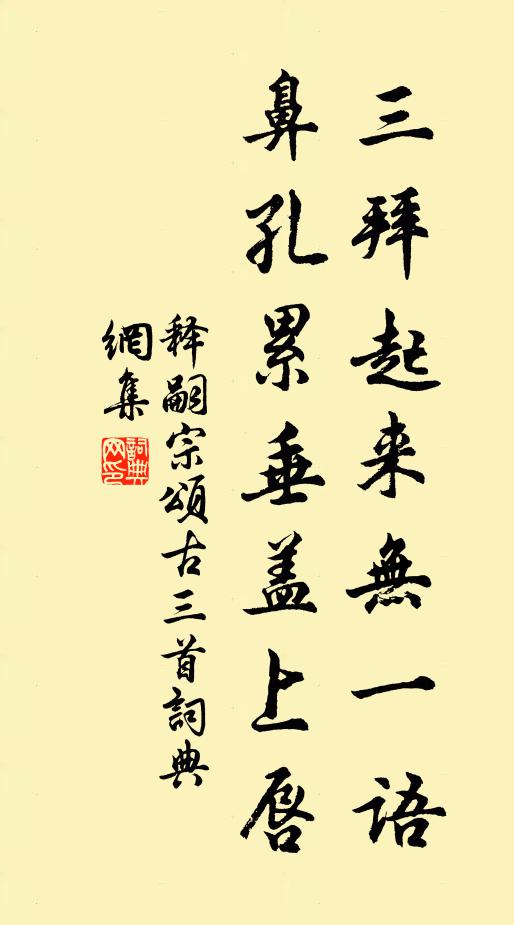 三拜起来無一语
鼻孔累垂盖上唇
释嗣宗頌古三首詞典
網集
詞典网印